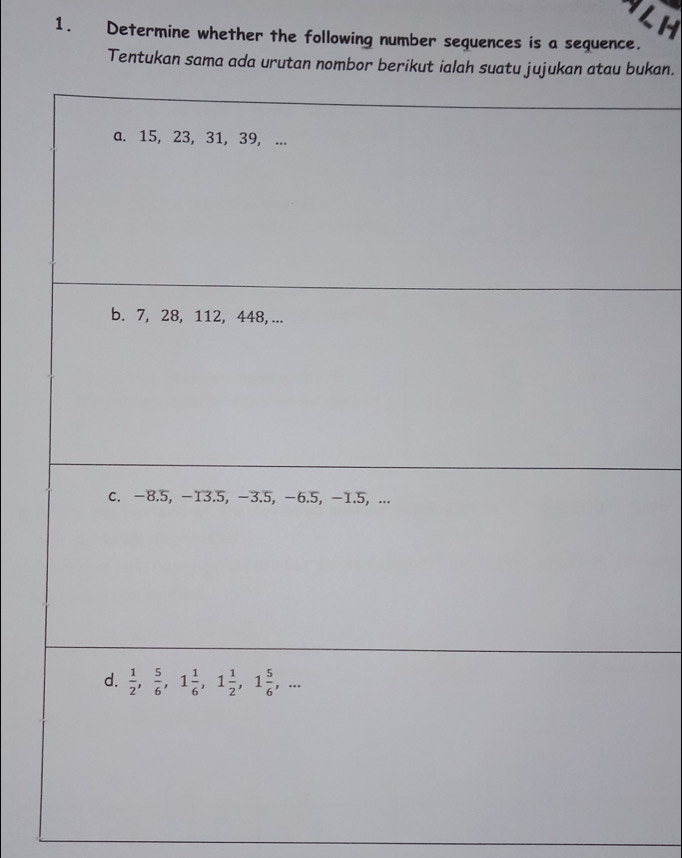 1. Determine whether the following number sequences is a sequence.
Tentukan sama ada urutan nombor berikut ialah suatu jujukan atau bukan.
a. 15, 23, 31, 39, ...
b. 7, 28, 112, 448, ...
c. −8.5, −13.5, −3.5, −6.5, −1.5, ...
d. 1/2, 5/6, 1 1/6, 1 1/2, 1 5/6, ...